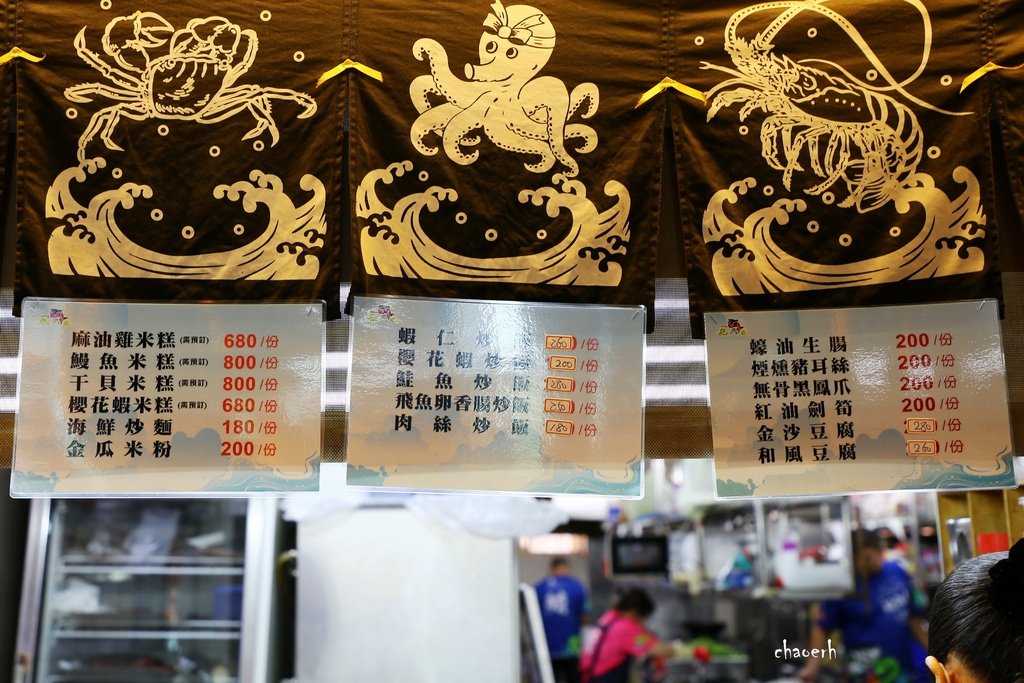 麻油雞米糕(需預訂) 680/份
鰻魚米糕(需預訂) 800/份
干貝米糕(需預訂) 800/份
櫻花蝦米糕(需預訂) 680/份
海鮮炒麵 180/份
金瓜米粉 200/份
蝦仁炒飯 260/份
櫻花蝦炒飯 200/份
鮭魚炒飯 280/份
飛魚卵香腸炒飯 250/份
肉絲炒飯 180/份
蠔油生腸 200/份
煙燻豬耳絲 200/份
無骨黑鳳爪 200/份
紅油劍筍 200/份
金沙豆腐 280/份
和風豆腐 260/份
chaoerh